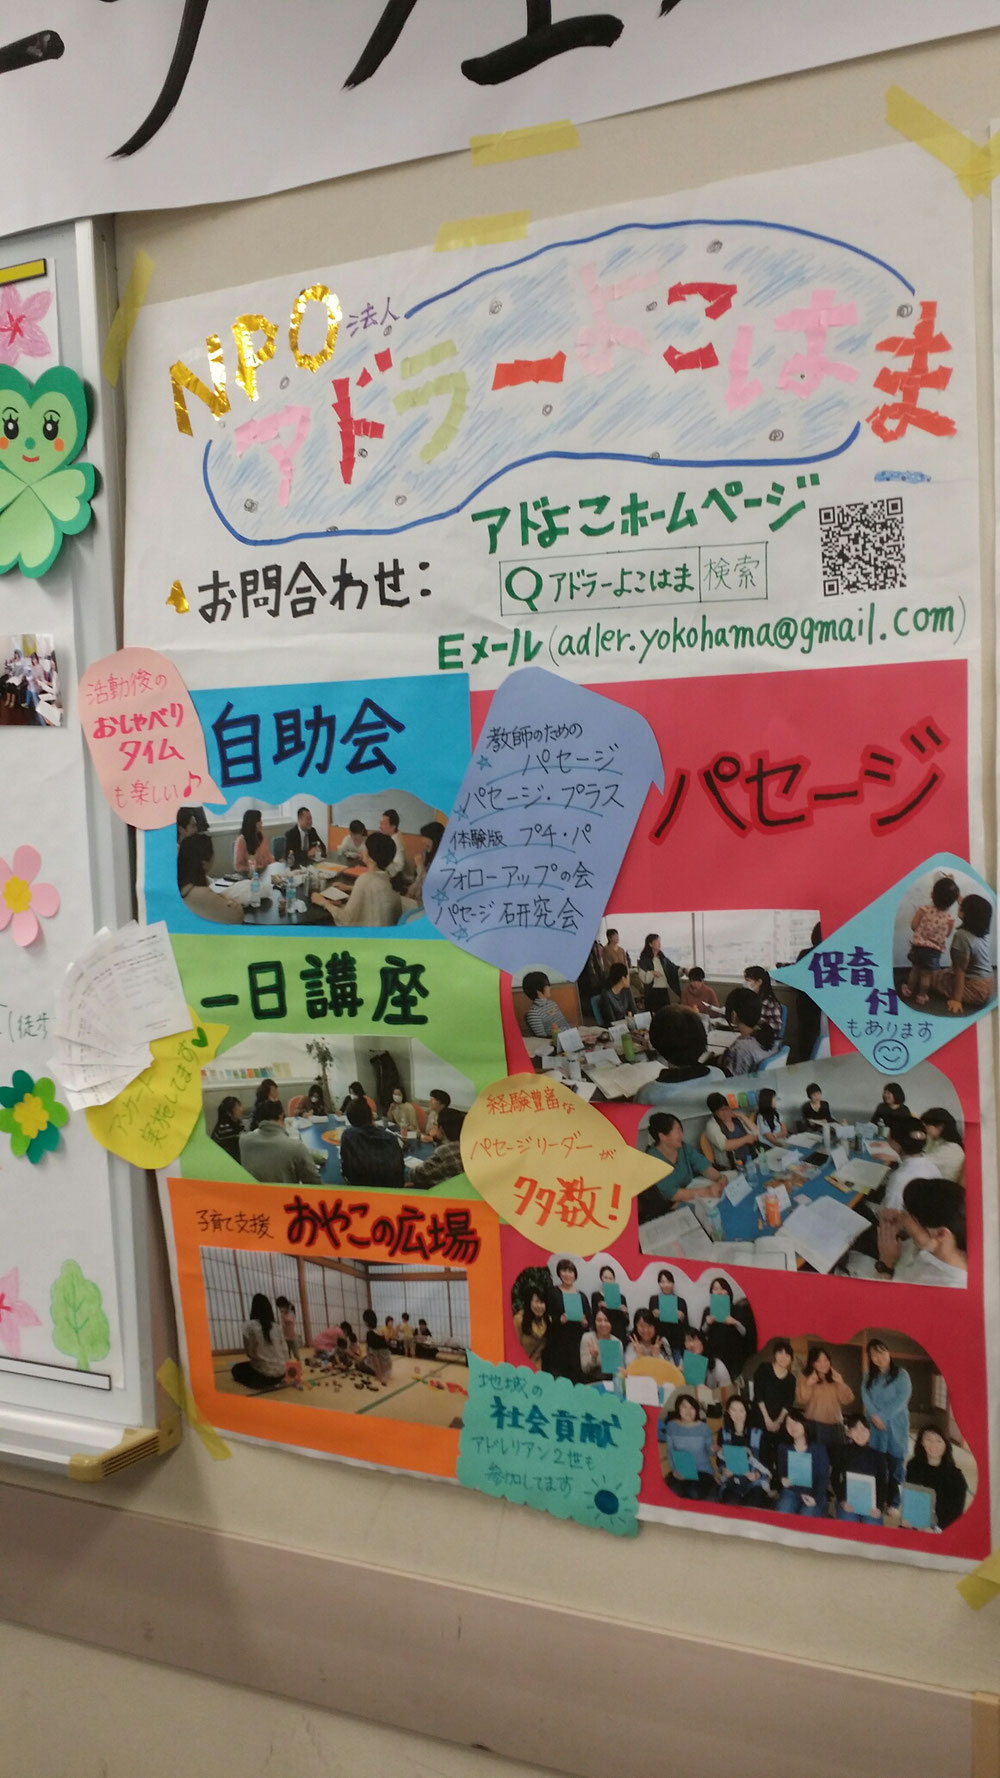 NPO法人
アドラーよこはま
アドよこホームページ
お問合わせ:
アドラーよこはま 検索
Eメール(adler.yokohama@gmail.com)
活動後の
おしゃべり
タイム
も楽しい♪
自助会
教師のための
パセージ
パセージ・プラス
体験版 プチ・パ
フォローアップの会
パセージ研究会
パセージ
保育
付
もあります
一日講座
アンケート
実施してます
経験豊富な
パセージリーダーが
多数!
子育て支援 おやこの広場
地域の
社会貢献
アドレリアン2世も
参加してます
(徒歩